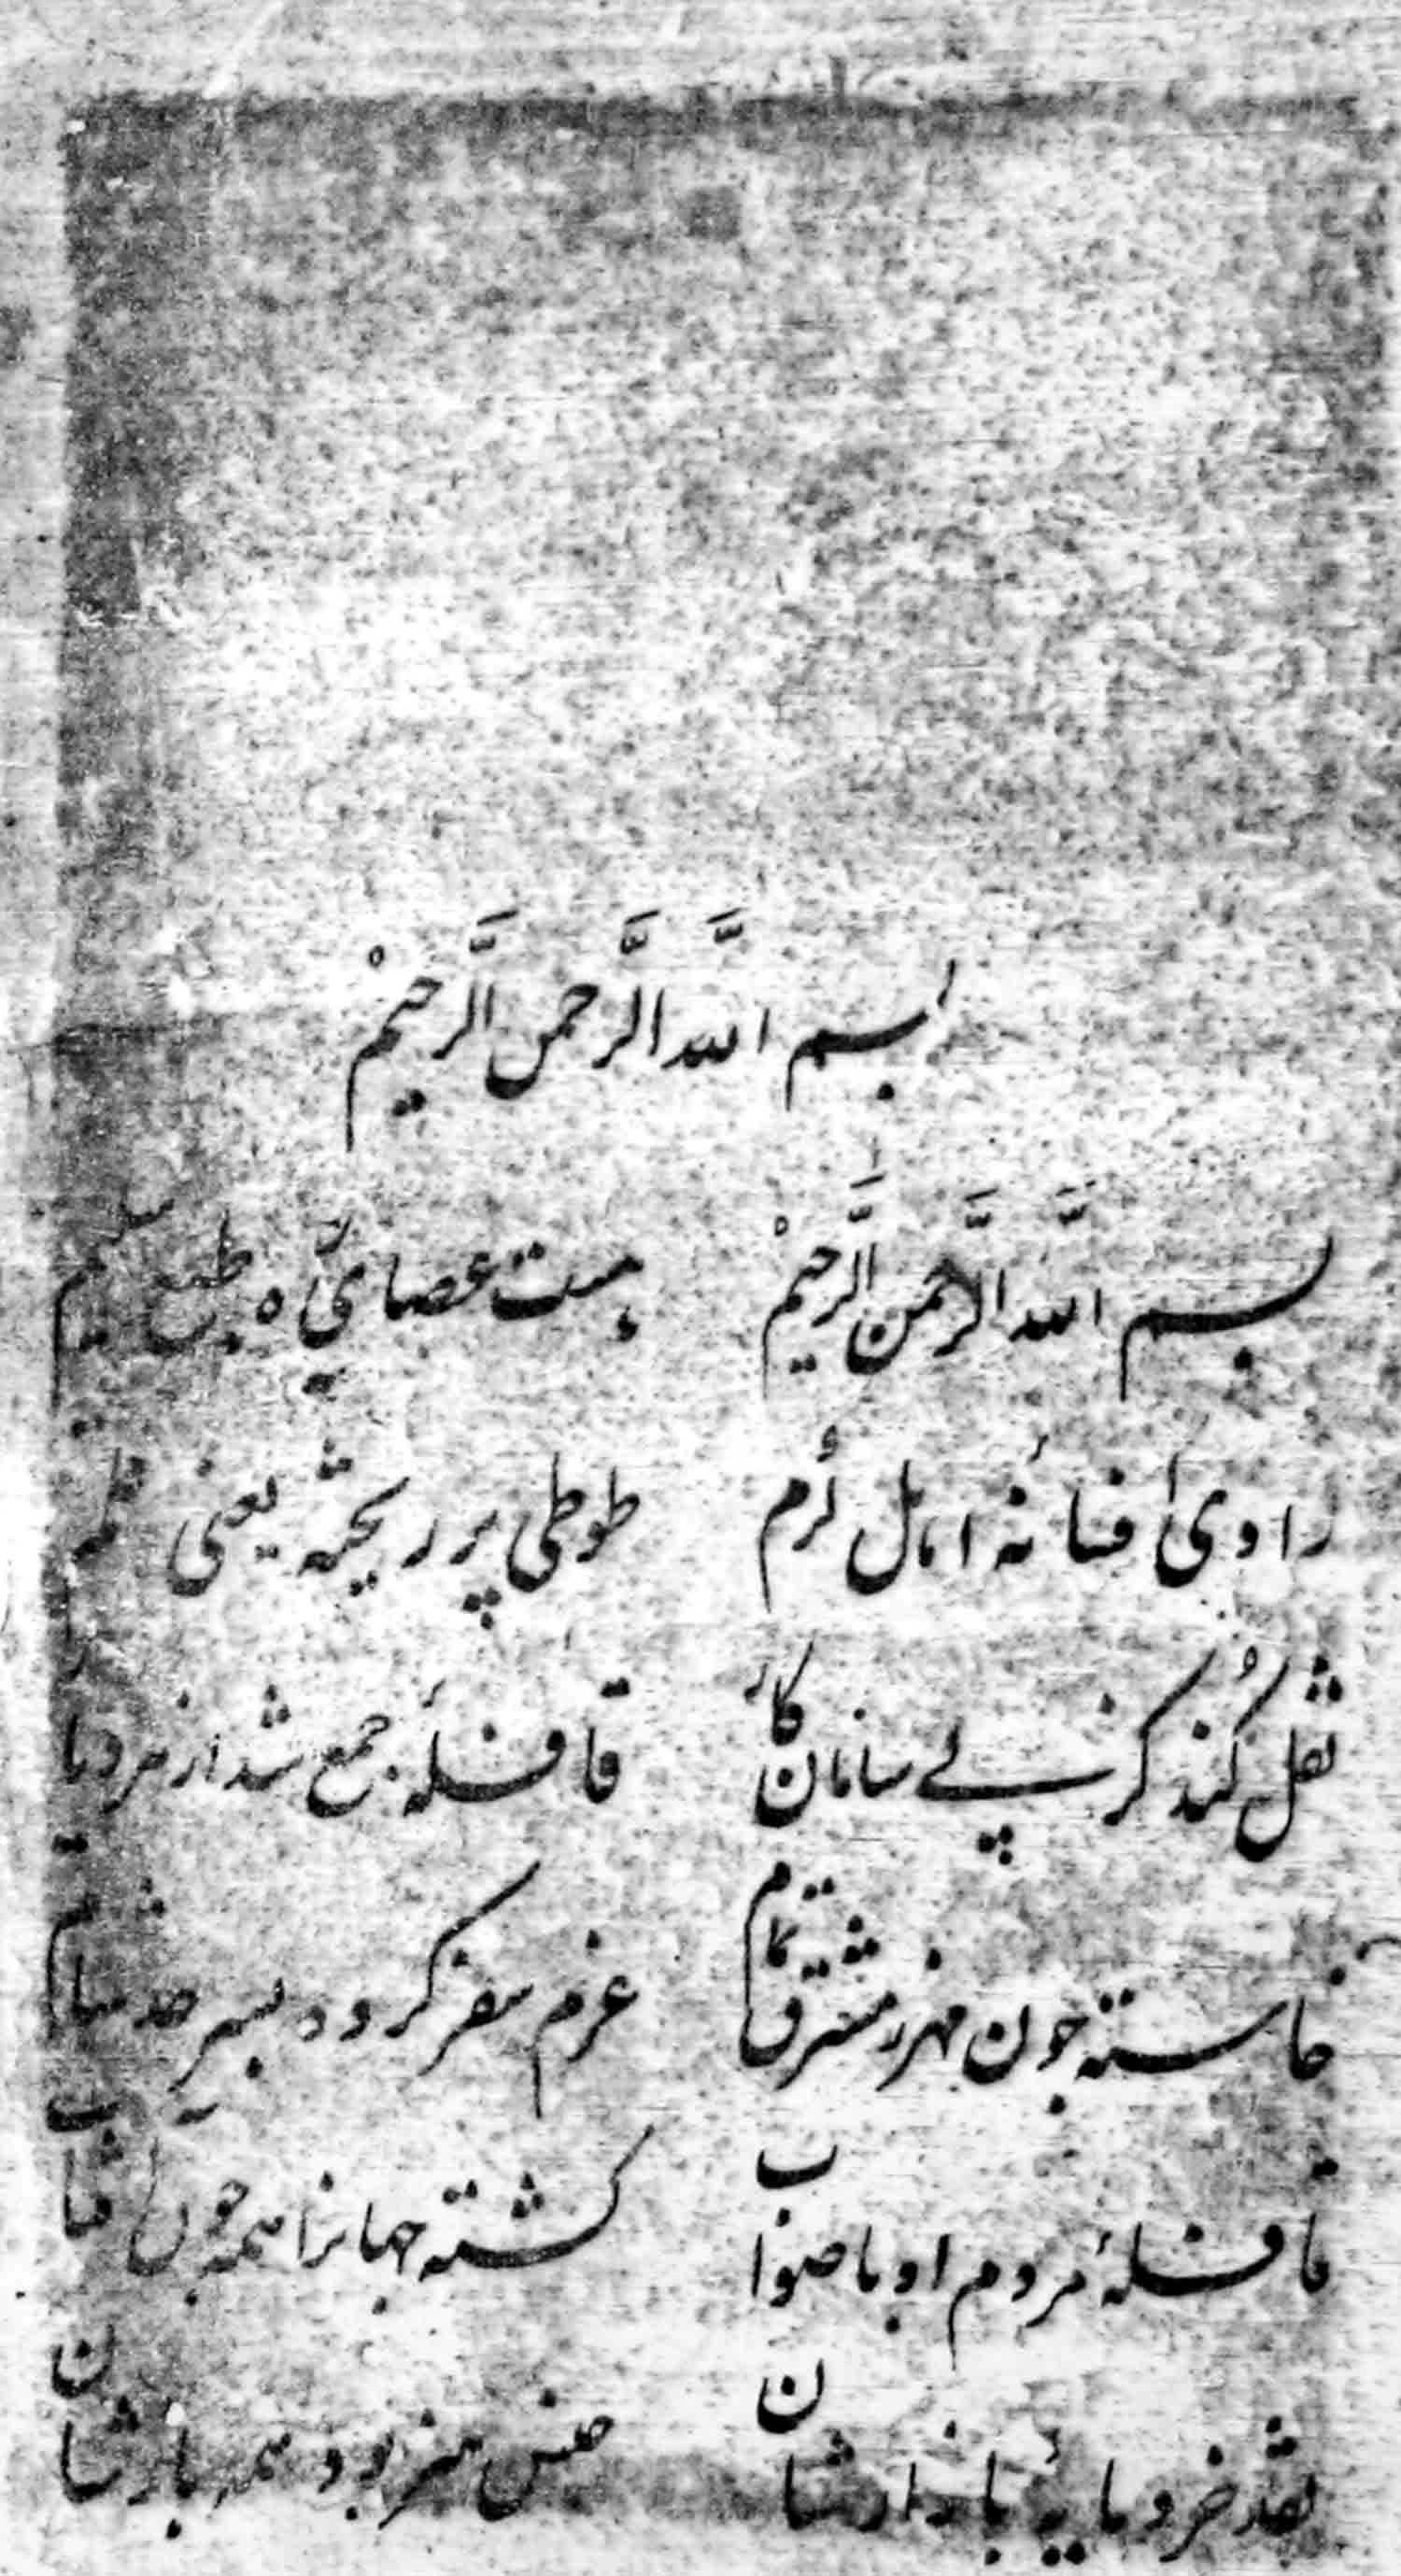 بسم اللَّه الرَّحمن الرَّحیمْ
بسم اللَّه الرَّحمن الرَّحیمْ هست عصای ره طبع سلیم
راویٔ افسانهٔ اهل کرم طوطی پر ریخته یعنی قلم
نقل کُند کز پے سامان کار قافلهٔ جمع شد از هر دیار
خاسته چون مهر ز مشرق تمام عزم سفر کرده بسرحد شام
قافلهٔ مردم او با صواب گشته جهانرا همه چون آفتاب
نقد خرد مایهٔ بازارشان جنس هنر بود همه بارشان